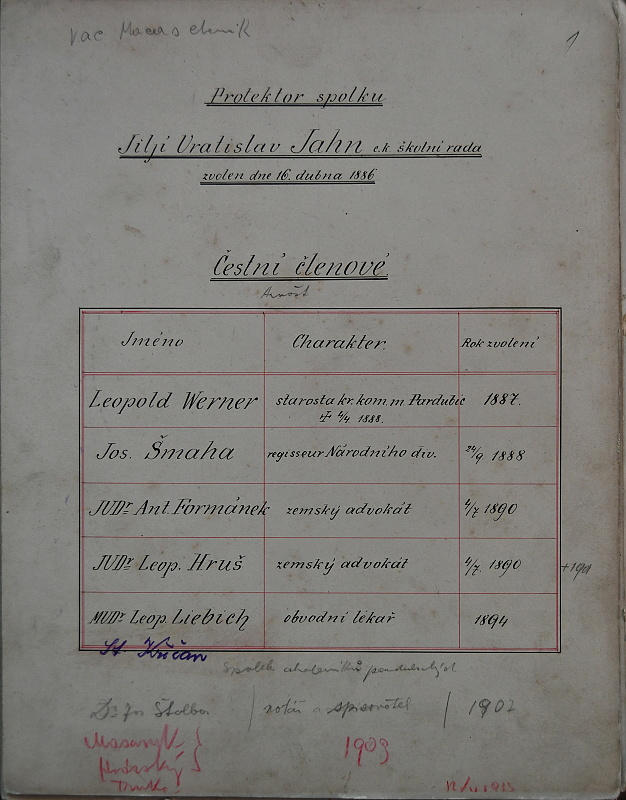 Vac
1
Protektor spolku
Jiljí Vratislav Jahn c.k. školní rada
zvolen dne 16. dubna 1886
Čestní členové
Jméno Charakter. Rok zvolení
Leopold Werner starosta kr. kom. m. Pardubic 1887.
1888.
Jos. Šmaha regisseur Národního div. 24/9 1888
JUDr Ant. Formánek zemský advokát 4/7 1890
JUDr Leop. Hruš zemský advokát 4/7. 1890 +1901
MUDr Leop. Liebich obvodní lékař 1894
St
Spolek akademiků pardubských
Dr Jos Štolba notář a spisovatel 1902
Masaryk 1903